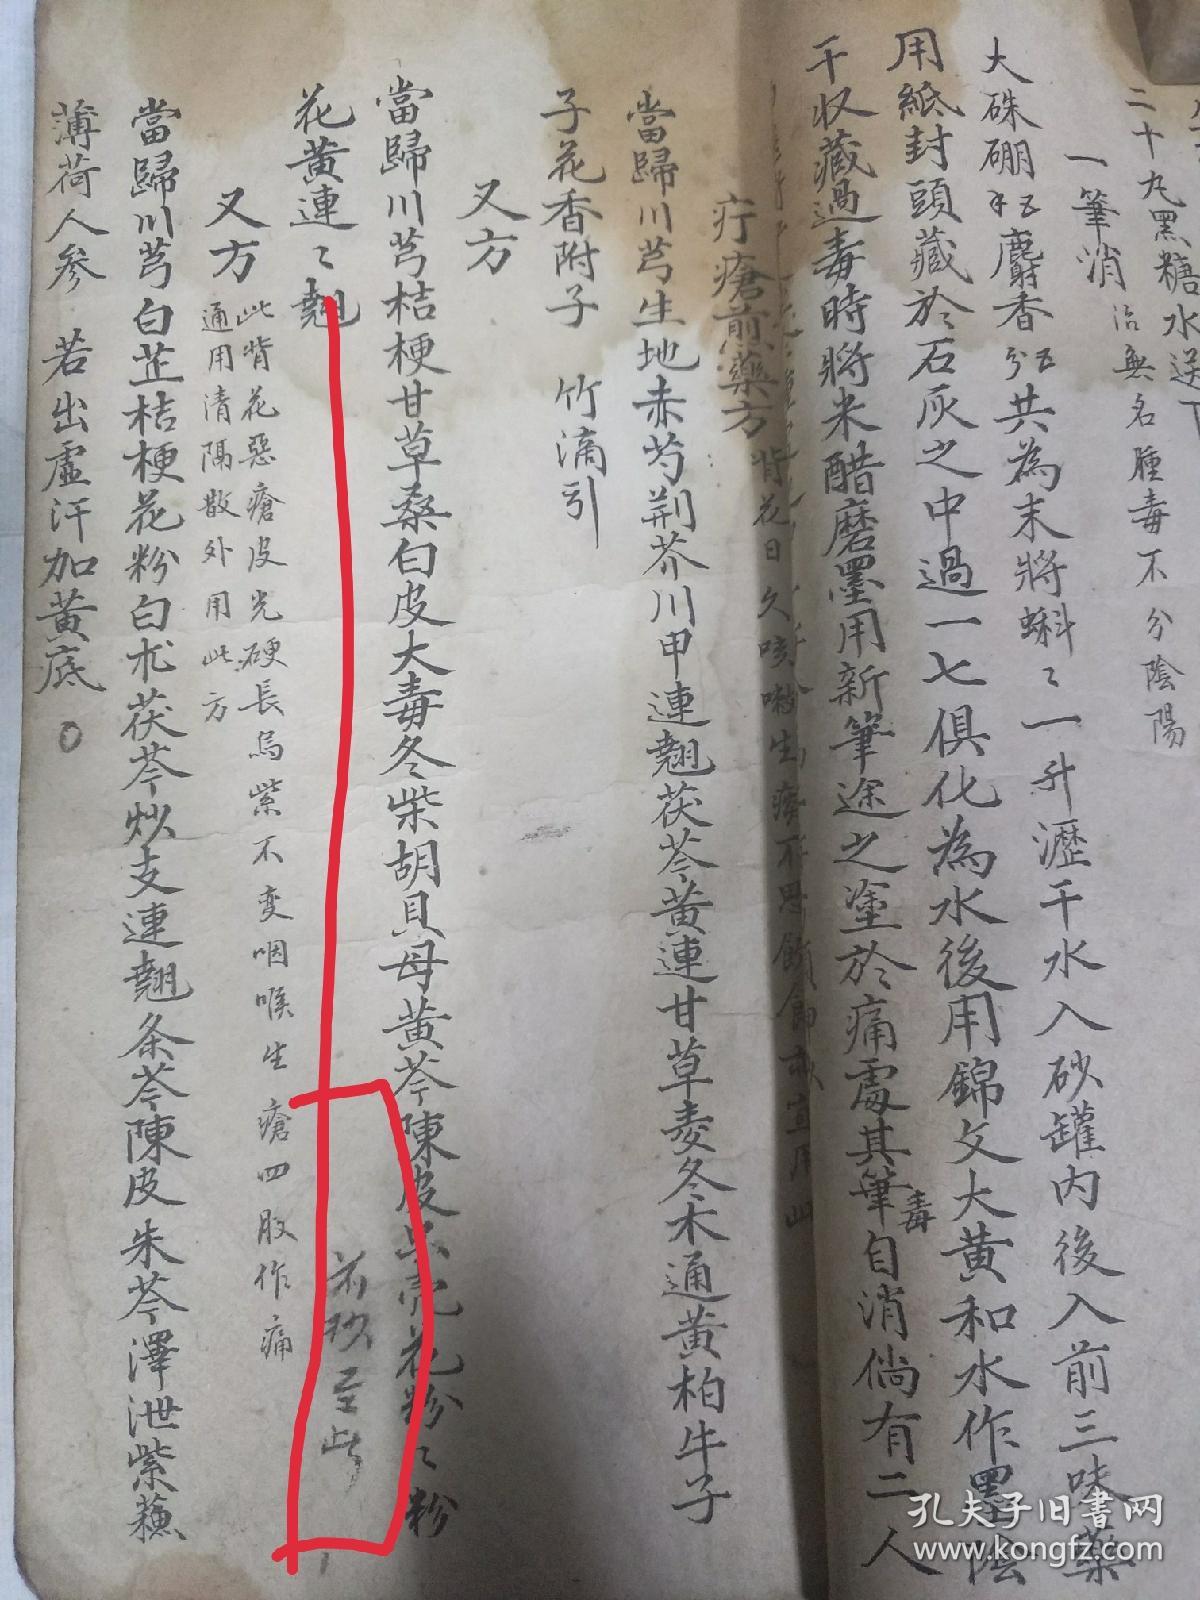 二十丸黑糖水送下
一筆消 治無名腫毒不分陰陽
大硃硼 麝香 共為末將蝌〻一升瀝干水入砂罐內後入前三味藥
用紙封頭藏於石灰之中過一七俱化為水後用錦文大黃和水作墨陰
干収藏過毒時將米醋磨墨用新筆途之塗於痛處其筆自消倘有二人
毒
疔瘡煎藥方 背花日久咳嗽生痰不思飲食
當歸川芎生地赤芍荊芥川甲連翹茯苓黃連甘草麦冬木通黃柏牛子
子花香附子 竹滴引
又方
當歸川芎桔梗甘草桑白皮大毒冬柴胡貝母黃芩陳皮只壳花粉〻粉
花黃連〻翹
前抄至此
又方 此背花惡瘡皮光硬長烏紫不变咽喉生瘡四肢作痛
通用清隔散外用此方
當歸川芎白芷桔梗花粉白朮茯苓炒支連翹条芩陳皮朱苓澤泄紫蘓
薄荷人參 若出虛汗加黃底
孔夫子旧書网
www.kongfz.com